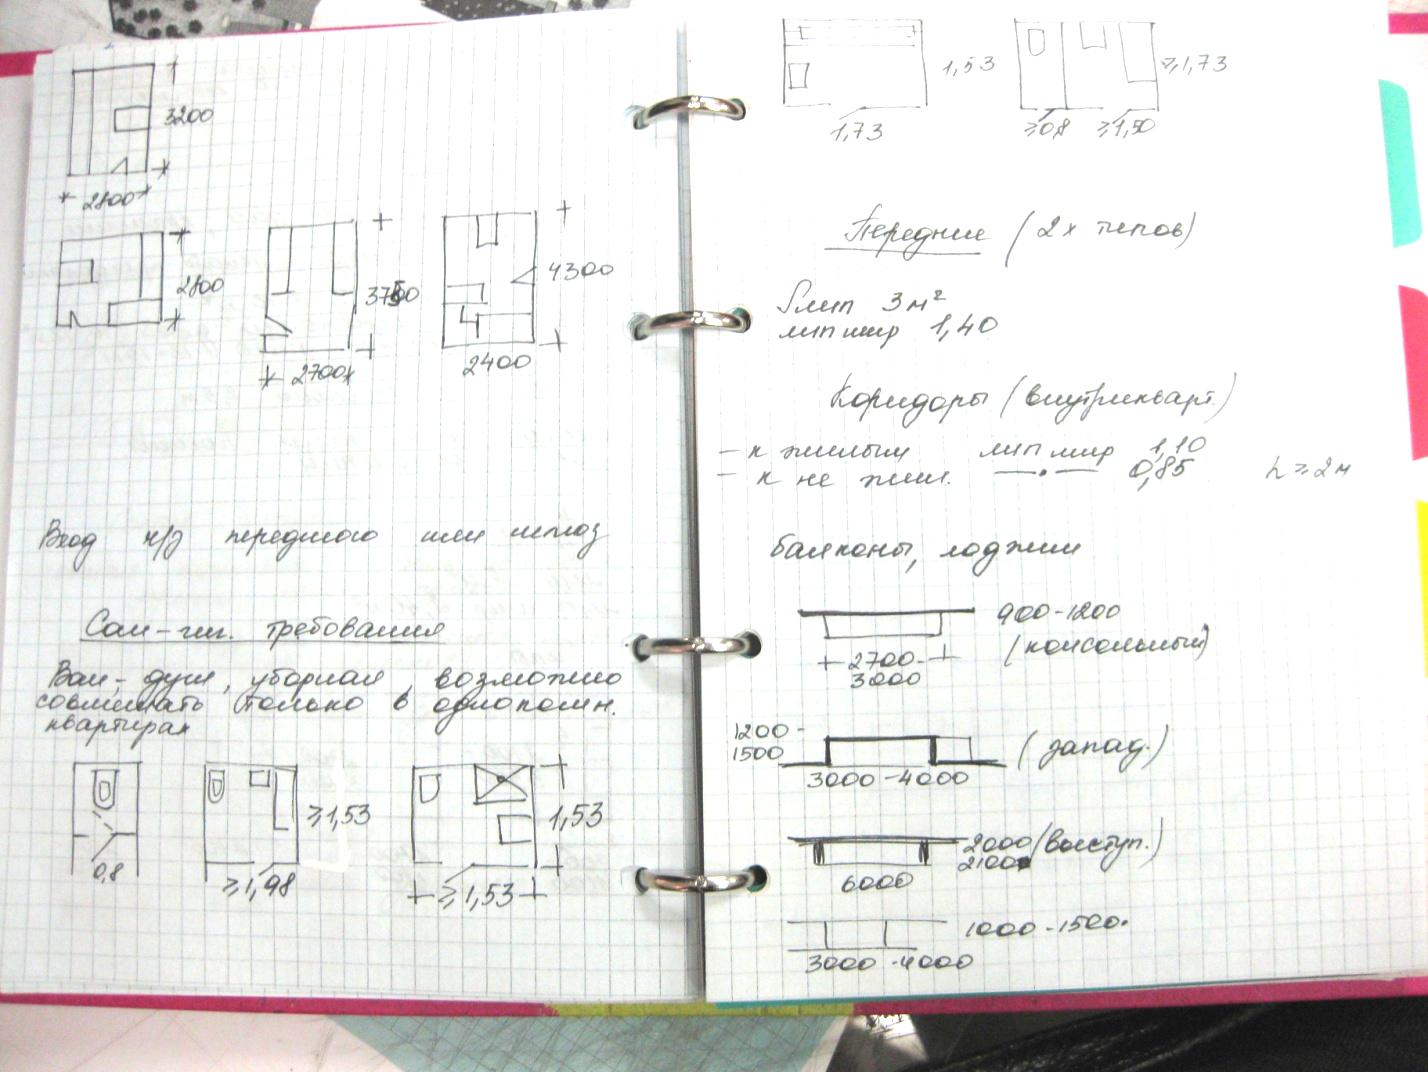 3200
2800
2800
3750
2700
4300
2400
Вход ч/з переднюю или шлюз
Сан-гиг. требования
Ван, душ, уборная, возможно
совмещать только в однокомн.
квартирах
0,8
≥1,53
≥1,98
1,53
≥1,53
1,53
1,73
≥1,73
≥0,8
≥1,50
Передние (2х типов)
Sмин 3м²
мин шир 1,40
Коридоры (внутрикварт.)
- к жилым мин шир 1,10
- к не жил. —·— 0,85 h≥2м
балконы, лоджии
900-1200
(консольный)
2700-
3000
1200-
1500
3000-4000
(запад.)
2000 (выступ.)
2100
6000
1000-1500
3000-4000